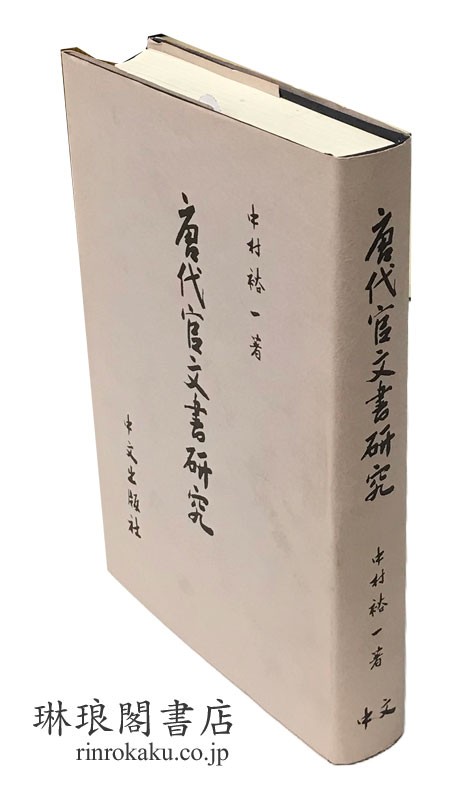 中村裕一著
唐代官文書研究
中文出版社
唐代官文書研究
中村裕一著
中文
琳琅閣書店
rinrokaku.co.jp